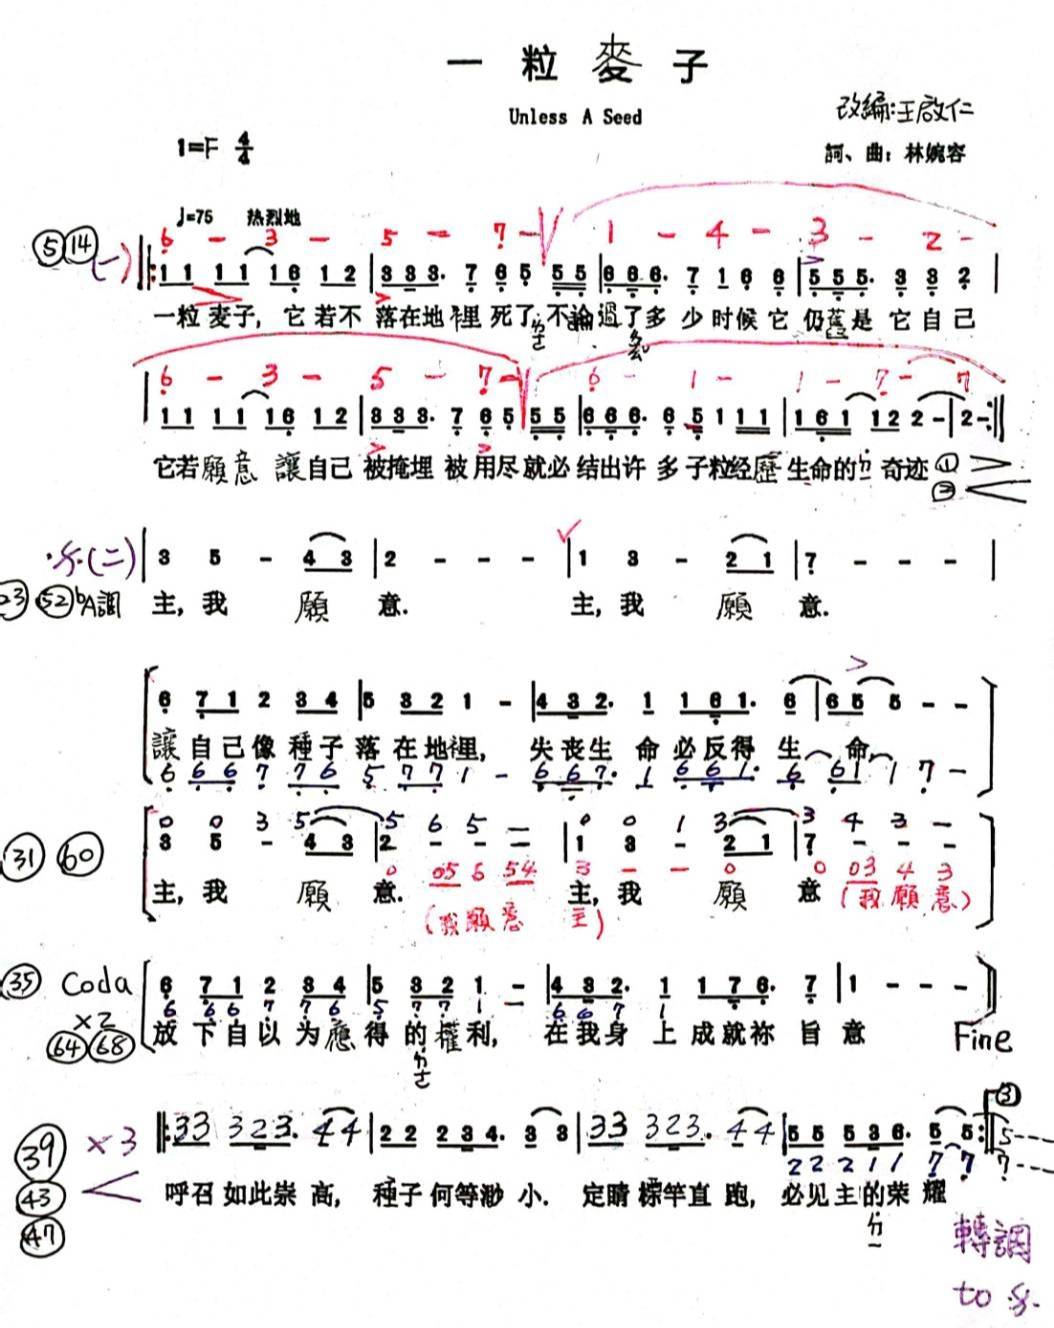 一粒麥子
Unless A Seed
改編:王啟仁
1=F 4/4
詞、曲：林婉容
♩=75 热烈地
⑤ ⑭
(一)
6 - 3 - 5 - 7 - 1 - 4 - 3 - 2 -
11 11 16 12 | 333. 7 65 55 | 666. 7 1 6 6 | 555. 3 3 2 |
一粒麥子，它若不落在地裡死了，不論過了多少时候它仍舊是它自己
ㄌㄜ
6 - 3 - 5 - 7 - 6 - 1 - 1 - 7 - 7
11 11 16 12 | 333. 7 65 55 | 666. 6 5 1 11 | 161 12 2 - | 2 - :||
它若願意讓自己被掩埋被用尽就必结出许多子粒经歷生命的奇迹 ① ②
𝄋(二) | 3 5 - 43 | 2 - - - | 1 3 - 21 | 7 - - - |
23 52 ♭A調 主，我願意. 主，我願意.
6 71 2 34 | 5 32 1 - | 432. 1 161. 6 | 65 5 - -
讓自己像種子落在地裡，失丧生命必反得生命，
6 66 7 76 5 77 1 - 667. 1 661. 6 61 1 7 -
0 0 3 5 5 6 5 - 0 0 1 3 3 4 3 -
31 60
3 5 - 43 | 2 - - - | 1 3 - 21 | 7 - - -
0 05 6 54 3 - - 0 0 03 4 3
主，我願意. 主，我願意
(我願意 主) (我願意)
35 Coda
6 71 2 34 | 5 32 1 - | 432. 1 176. 7 | 1 - - -
6 66 7 76 5 77 1 - 667 1
×2
64 68
放下自以为應得的權利，在我身上成就祢旨意
ㄉㄜ
Fine
③
39 ×3
33 323. 44 | 22 234. 3 3 | 33 323. 44 | 55 536. 5 5 :|| 5 - - -
22 211 7 7 7 - - -
43
呼召如此崇高，種子何等渺小. 定睛標竿直跑，必见主的荣耀
47
轉調
to 𝄋.